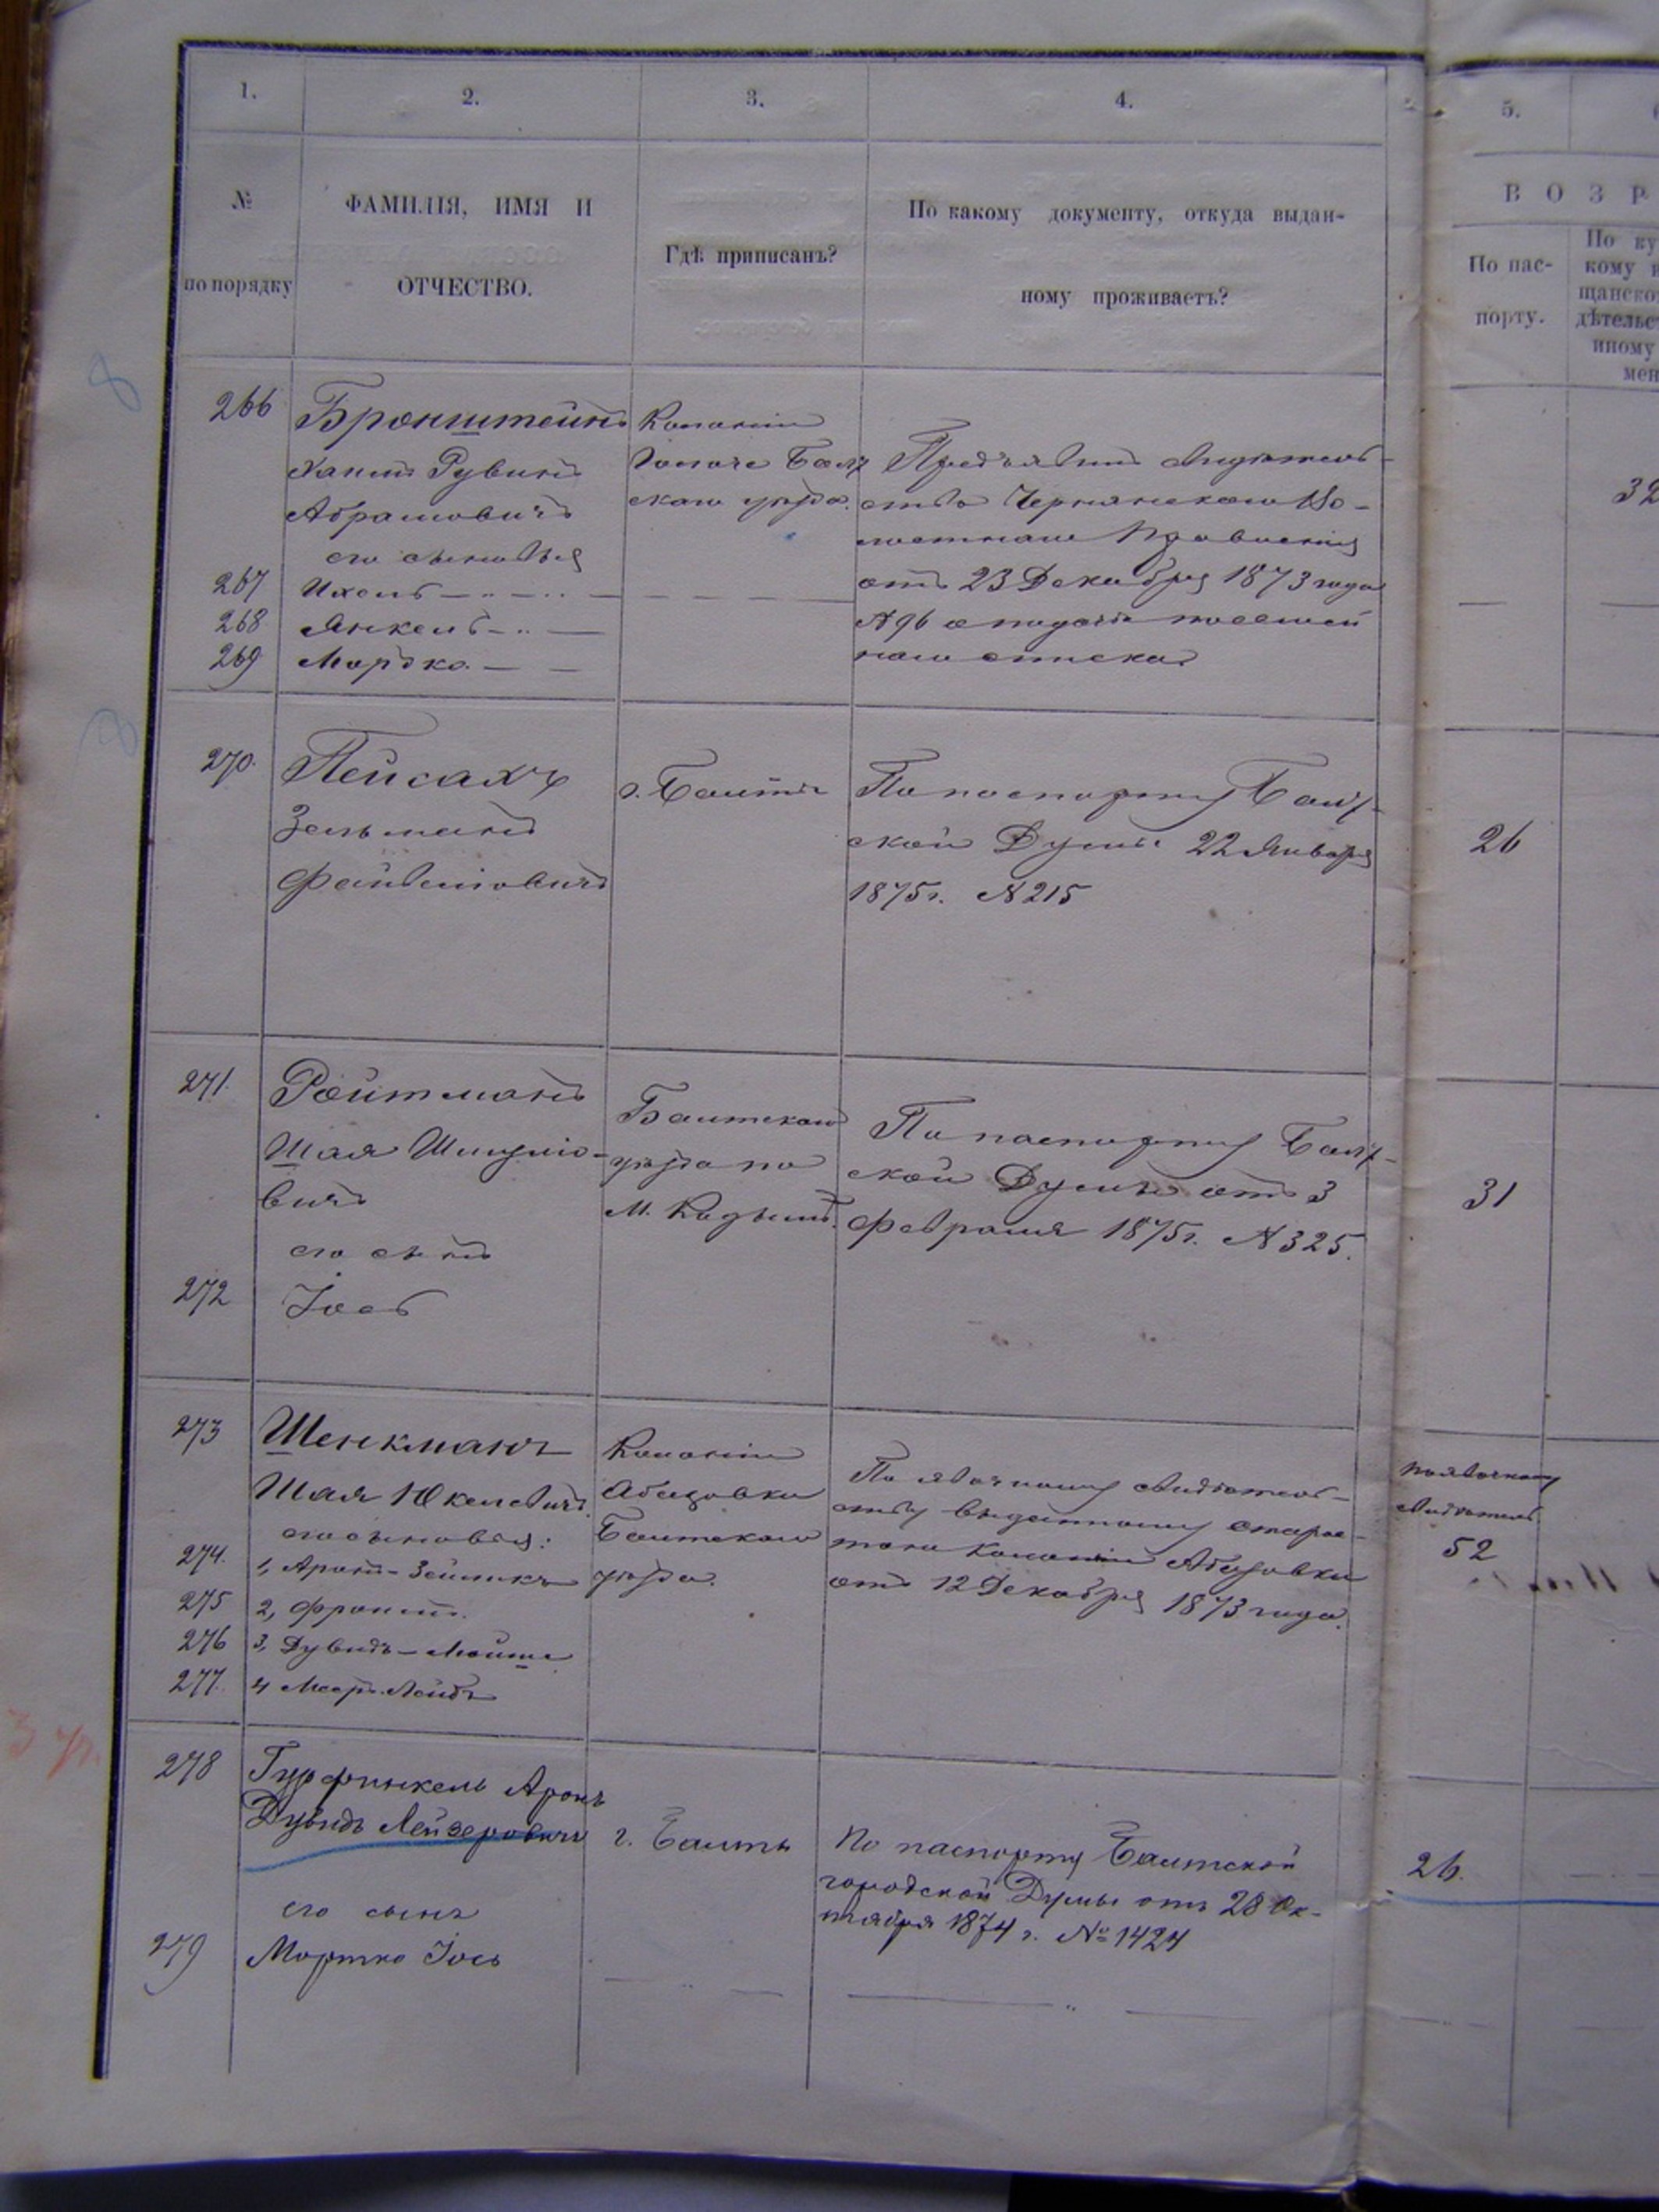 1.
2.
3.
4.
5.
№
по порядку
ФАМИЛІЯ, ИМЯ И
ОТЧЕСТВО.
Гдѣ приписанъ?
По какому документу, откуда выдан-
ному проживаетъ?
ВОЗР
По пас-
порту.
По ку
кому
щанско
дѣтельс
иному
мен
266
Бронштейнъ
Рувинъ
Абрамовичъ
его сыновья
267 Ихель
268 Янкель
269 Мордко
Колоніи
Балт
скаго уѣзда.
Предъявилъ свидѣтель-
ство Чернянскаго Во-
лостнаго Правленія
отъ 23 Декабря 1873 года
№ 96 о подачѣ посемей
наго списка
32
270.
Пейсахъ
Зельманъ
Файвелювичъ
г. Балты
По паспорту Балт-
ской Думы 22 Января
1875 г. № 215
26
271.
Ройтманъ
Шая Шмулю-
вичъ
его сынъ
272 Іось
Балтскаго
уѣзда по
м. Кодымѣ.
По паспорту Балт-
ской Думы отъ 3
Февраля 1875 г. № 325.
31
273
Шенкманъ
Шая Юкелевичъ
его сыновья:
274. 1, Аронъ-Зейликъ
275 2, Фроимъ.
276 3, Дувидъ-Мойше
277. 4 Меер-Лейбъ
Колоніи
Абазовки
Балтскаго
уѣзда.
По явочному свидѣтель-
ству выданному старос-
тою колоніи Абазовки
отъ 12 Декабря 1873 года.
По явочному
свидѣтель
52
278
Гурфинкель Аронъ
Дувидъ Лейзеровичъ
его сынъ
279 Мортко Іось
г. Балты
По паспорту Балтской
городской Думы отъ 28 Ок-
тября 1874 г. № 1424
26.